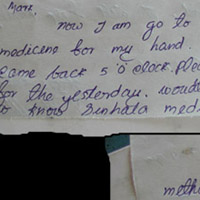 Mark,
now I am go to
medicine for my hand.
came back 5 'o' clock. Plea
for the yesterday. would
to know Sinhala medi
meth